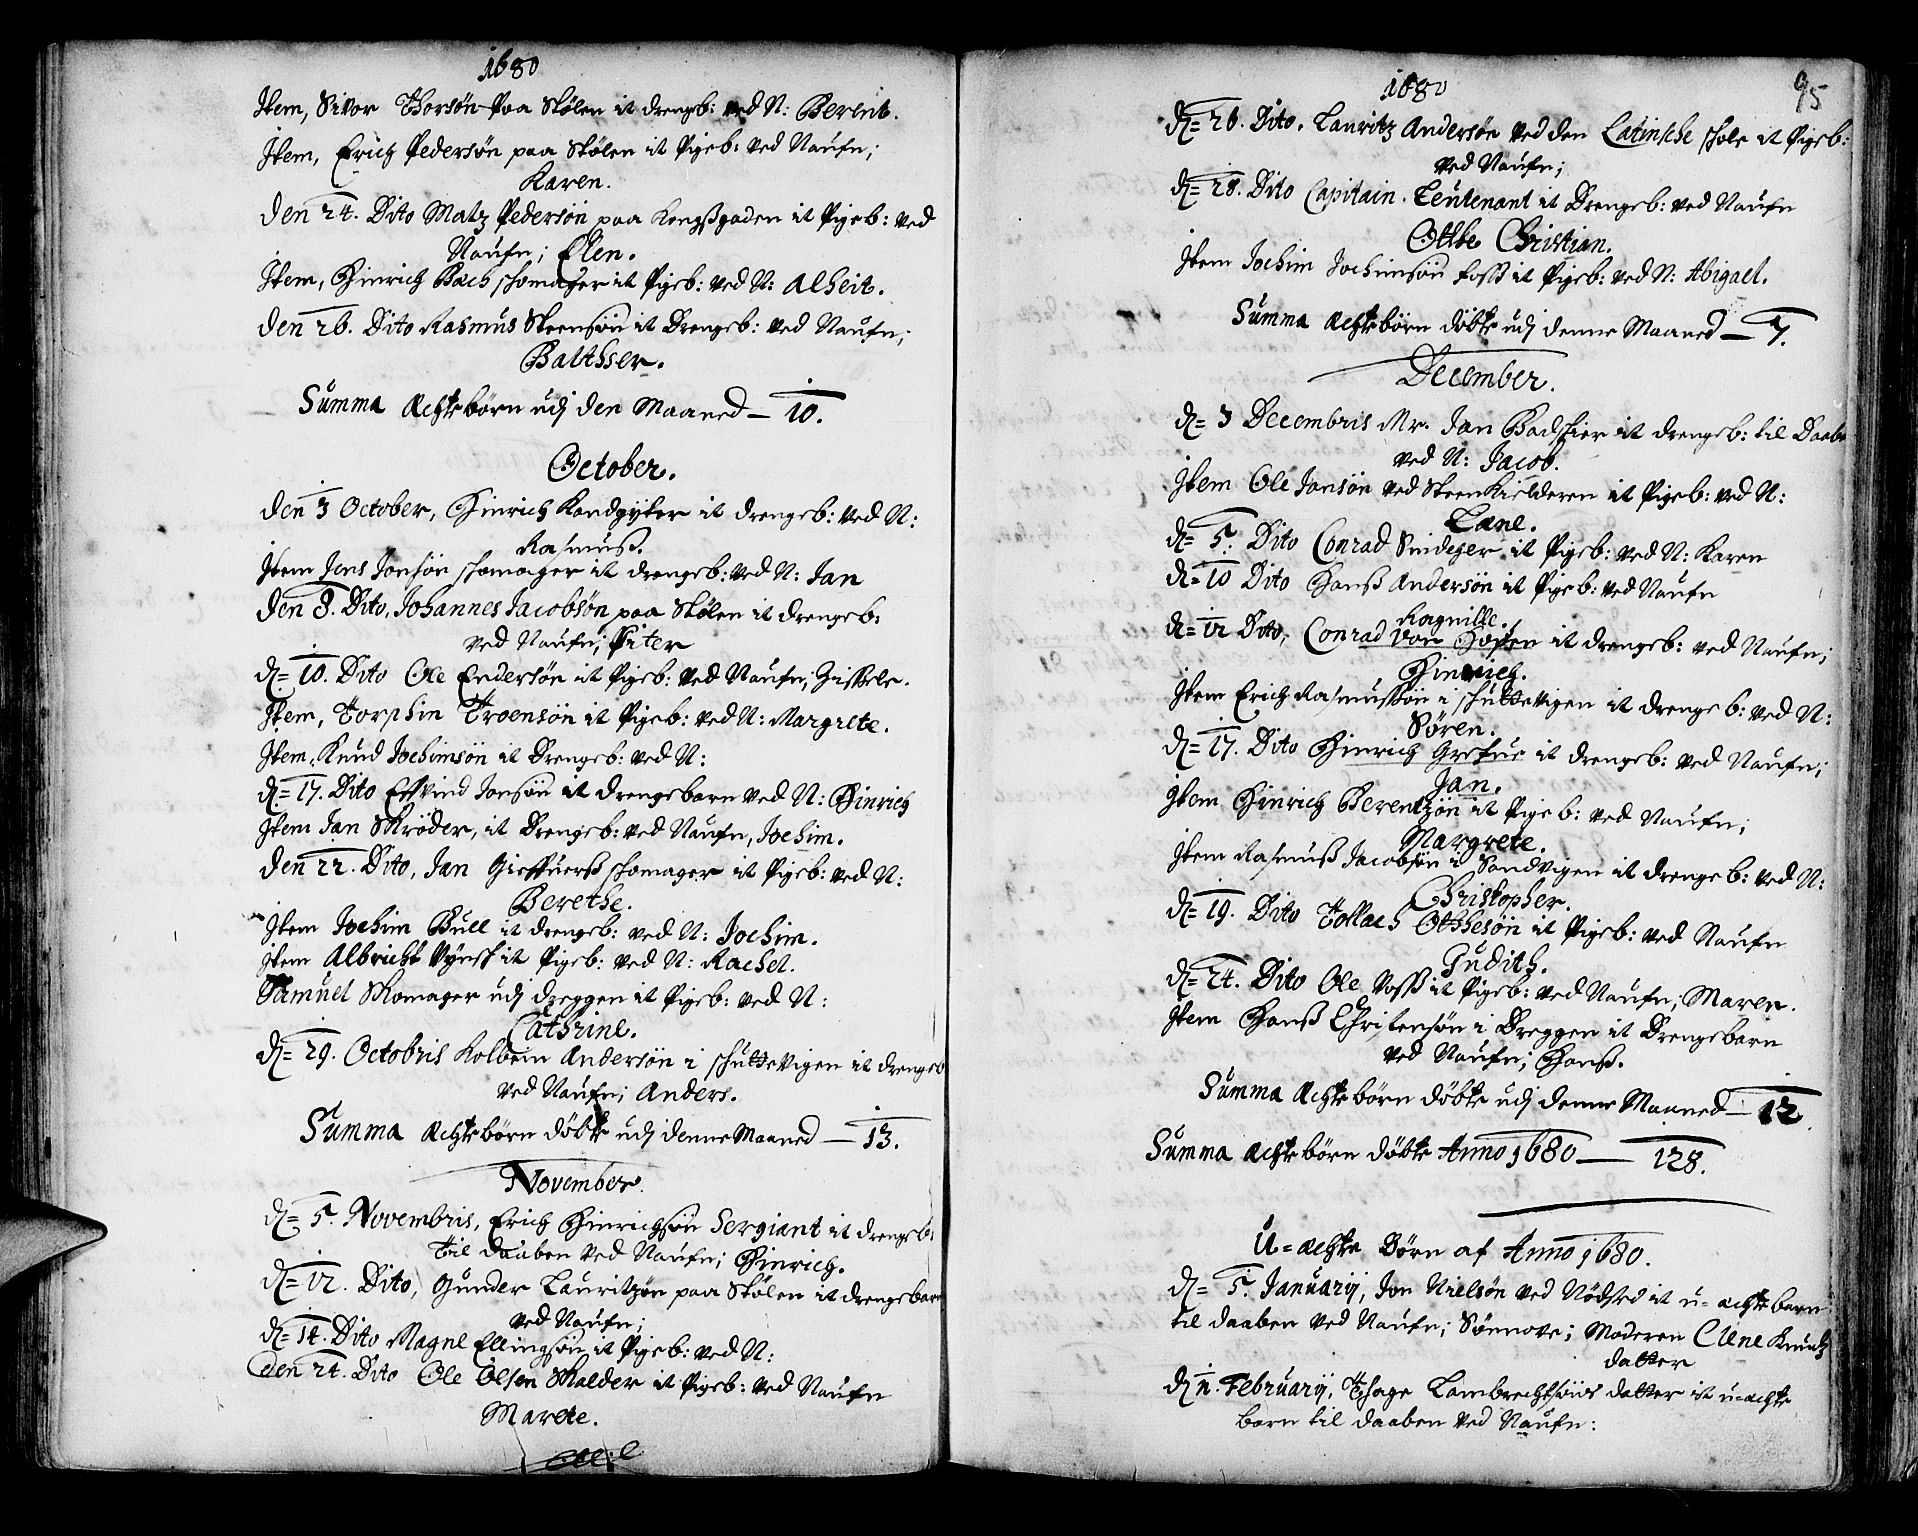 1680
Item, Sivor Thorsøn paa Stølen it drengb: ved N: Berent.
Item, Erich Pedersøn paa Stølen it Pigeb: ved Naufn;
Karen.
Den 24. Dito Matz Pedersøn paa Kongßgaden it Pigeb: ved
Naufn; Elen.
Item, Hinrich Bach shomager it Pigeb: ved N: Alheit.
Den 26. Dito Rasmus Steensøn it Drengeb: ved Naufn;
Balthser.
Summa Achte börn udj den Maaned — 10.
October.
Den 3 October, Hinrich Kandgyter it drengeb: ved N:
Rasmuß.
Item Jens Jonsøn shomager it drengeb: ved N: Jan
Den 8. Dito, Johannes Jacobsøn paa Stølen it drengeb:
ved Naufn; Piter
D= 10. Dito Ole Endersøn it Pigeb: ved Naufn; Zissele.
Item, Torphin Troensøn it Pigeb: ved N: Margrete.
Item, Knud Jochimsøn it Drengeb: ved N:
D= 17. Dito Effvind Jonsøn it drengebarn ved N: Hinrich
Item Jan Skrøder, it Drengeb: ved Naufn, Jochim.
Den 22. Dito, Jan shomager it Pigeb: ved N:
Berethe.
Item Jochim Bull it drengeb: ved N: Jochim.
Item Albricht it Pigeb: ved N: Rachel.
Samuel Skomager udj dreggen it Pigeb: ved N:
Cathrine.
D= 29. Octobris Kolbein Andersøn i shuttevigen it drengeb
ved Naufn; Anders.
Summa Achte börn döbte udj denne Maaned — 13.
November.
D= 5. Novembris, Erich Hinrichsøn Sergiant it drengeb:
til daaben ved Naufn; Hinrich.
D= 12. Dito, Gunder Lauritzøn paa Stølen it drengebarn
ved Naufn;
D= 14. Dito Magne Ellingsøn it Pigeb: ved N:
Den 24. Dito Ole Olsen Skalder it Pigeb: ved Naufn
Marete.
1680
95
D= 26. Dito. Lauritz Andersøn ved den Latinsche shole it Pigeb:
ved Naufn;
D= 28. Dito Capitain. Leutenant it Drengeb: ved Naufn
Otthe Christian.
Item Jochim Jochimsøn Foss it Pigeb: ved N: Abigael.
Summa Achte börn döbte udj denne Maaned — 7.
December.
D= 3 Decembris Mr. Jan Badskier it drengeb: til Daabe
ved N: Jacob.
Item Ole Jansøn ved Steen Kielderen it Pigeb: ved N:
Lene.
D= 5. Dito Conrad Snideger it Pigeb: ved N: Karen
D= 10 Dito Hanß Andersøn it Pigeb: ved Naufn
Ragnille.
D= 12 Dito, Conrad von it drengeb: ved Naufn;
Hinrich.
Item Erich Rasmussøn i shuttevigen it drengeb: ved N:
Søren.
D= 17. Dito Hinrich Grefue it drengeb: ved Naufn;
Jan.
Item Hinrich Berentzøn it Pigeb: ved Naufn;
Margrete.
Item Rasmuß Jacobsøn i Sandvigen it drengeb: ved N:
Christopher.
D= 19. Dito Tollach Otthesøn it Pigeb: ved Naufn
Judith.
D= 24. Dito Ole Voss it Pigeb: ved Naufn; Maren.
Item Hanß Christensøn i Dreggen it Drengebarn
ved Naufn; Hanß.
Summa Achte börn döbte udj denne Maaned — 12
Summa Achte börn döbte Anno 1680 — 128.
U=achte Börn af Anno 1680.
D= 5. Januarij, Jon Nielsøn ved Nødsted it u-achte barn
til daaben ved Naufn; Sønnove; Moderen Elene Knudtz
datter
D Februarij, Thage Lambrechtsøns datter it u-achte
barn til daaben ved Naufn: